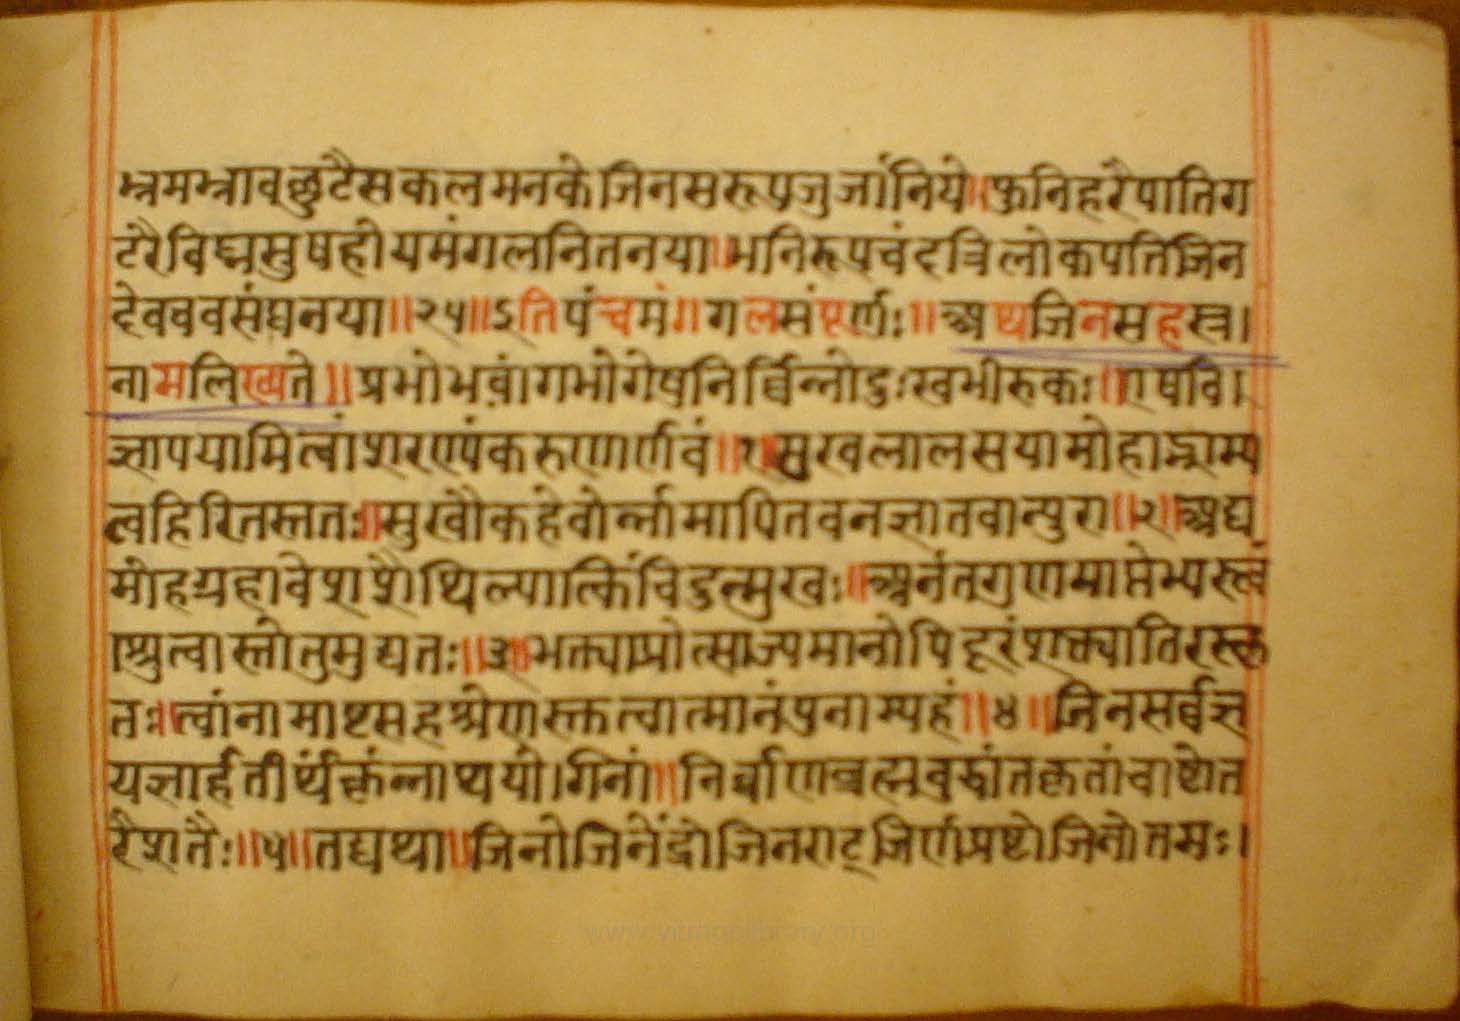 भ्रमभ्रावछुटैसकलमनकेजिनसरूपजुजांनिये॥फुनिहरैपातिग
टरैविघ्नसुषहीयमंगलनितनया॥भनिरूपचंदत्रिलोकपतिजिन
देवववसंघनया॥२५॥ऽतिपंचमंगलसंपूर्णः॥अथजिनसहस्त्र।
नामलिख्यते॥प्रभोभवांगभोगेषुनिर्विन्नोडुःखभीरुकः॥एषवि।
ज्ञापयामित्वांशरणंपंकरुणार्णवं॥१॥सुखलालसयामोहाद्भ्राम्य
त्वहिरितस्ततः॥सुखौकहेवोर्न्नामापितवनज्ञातवान्पुरा॥२॥अद्य
मोहग्रहावेशशैथिल्पात्किंविडुन्मुखः॥अनंतगुणमाप्तेभ्यस्त्वं
ाश्रुत्वास्तोतुमुद्यतः॥३॥भक्त्याप्रोत्साज्पमानोपिदूरंशक्त्यातिरस्क
तः॥त्वांनामाष्टसहश्रेणस्क्तत्वात्मानंपुनाम्पहं॥४॥जिनसर्वज्ञ
यज्ञार्हतीर्थक्रंन्नाथयोगिनां॥निर्वाणब्रह्मबुद्धांतकृतांचाष्टोत
रैशतैः॥५॥तद्यथा॥जिनोजिनेंद्रोजिनराट्जिर्णप्रष्टोजिनोतमः।
www.vitragelibrary.org